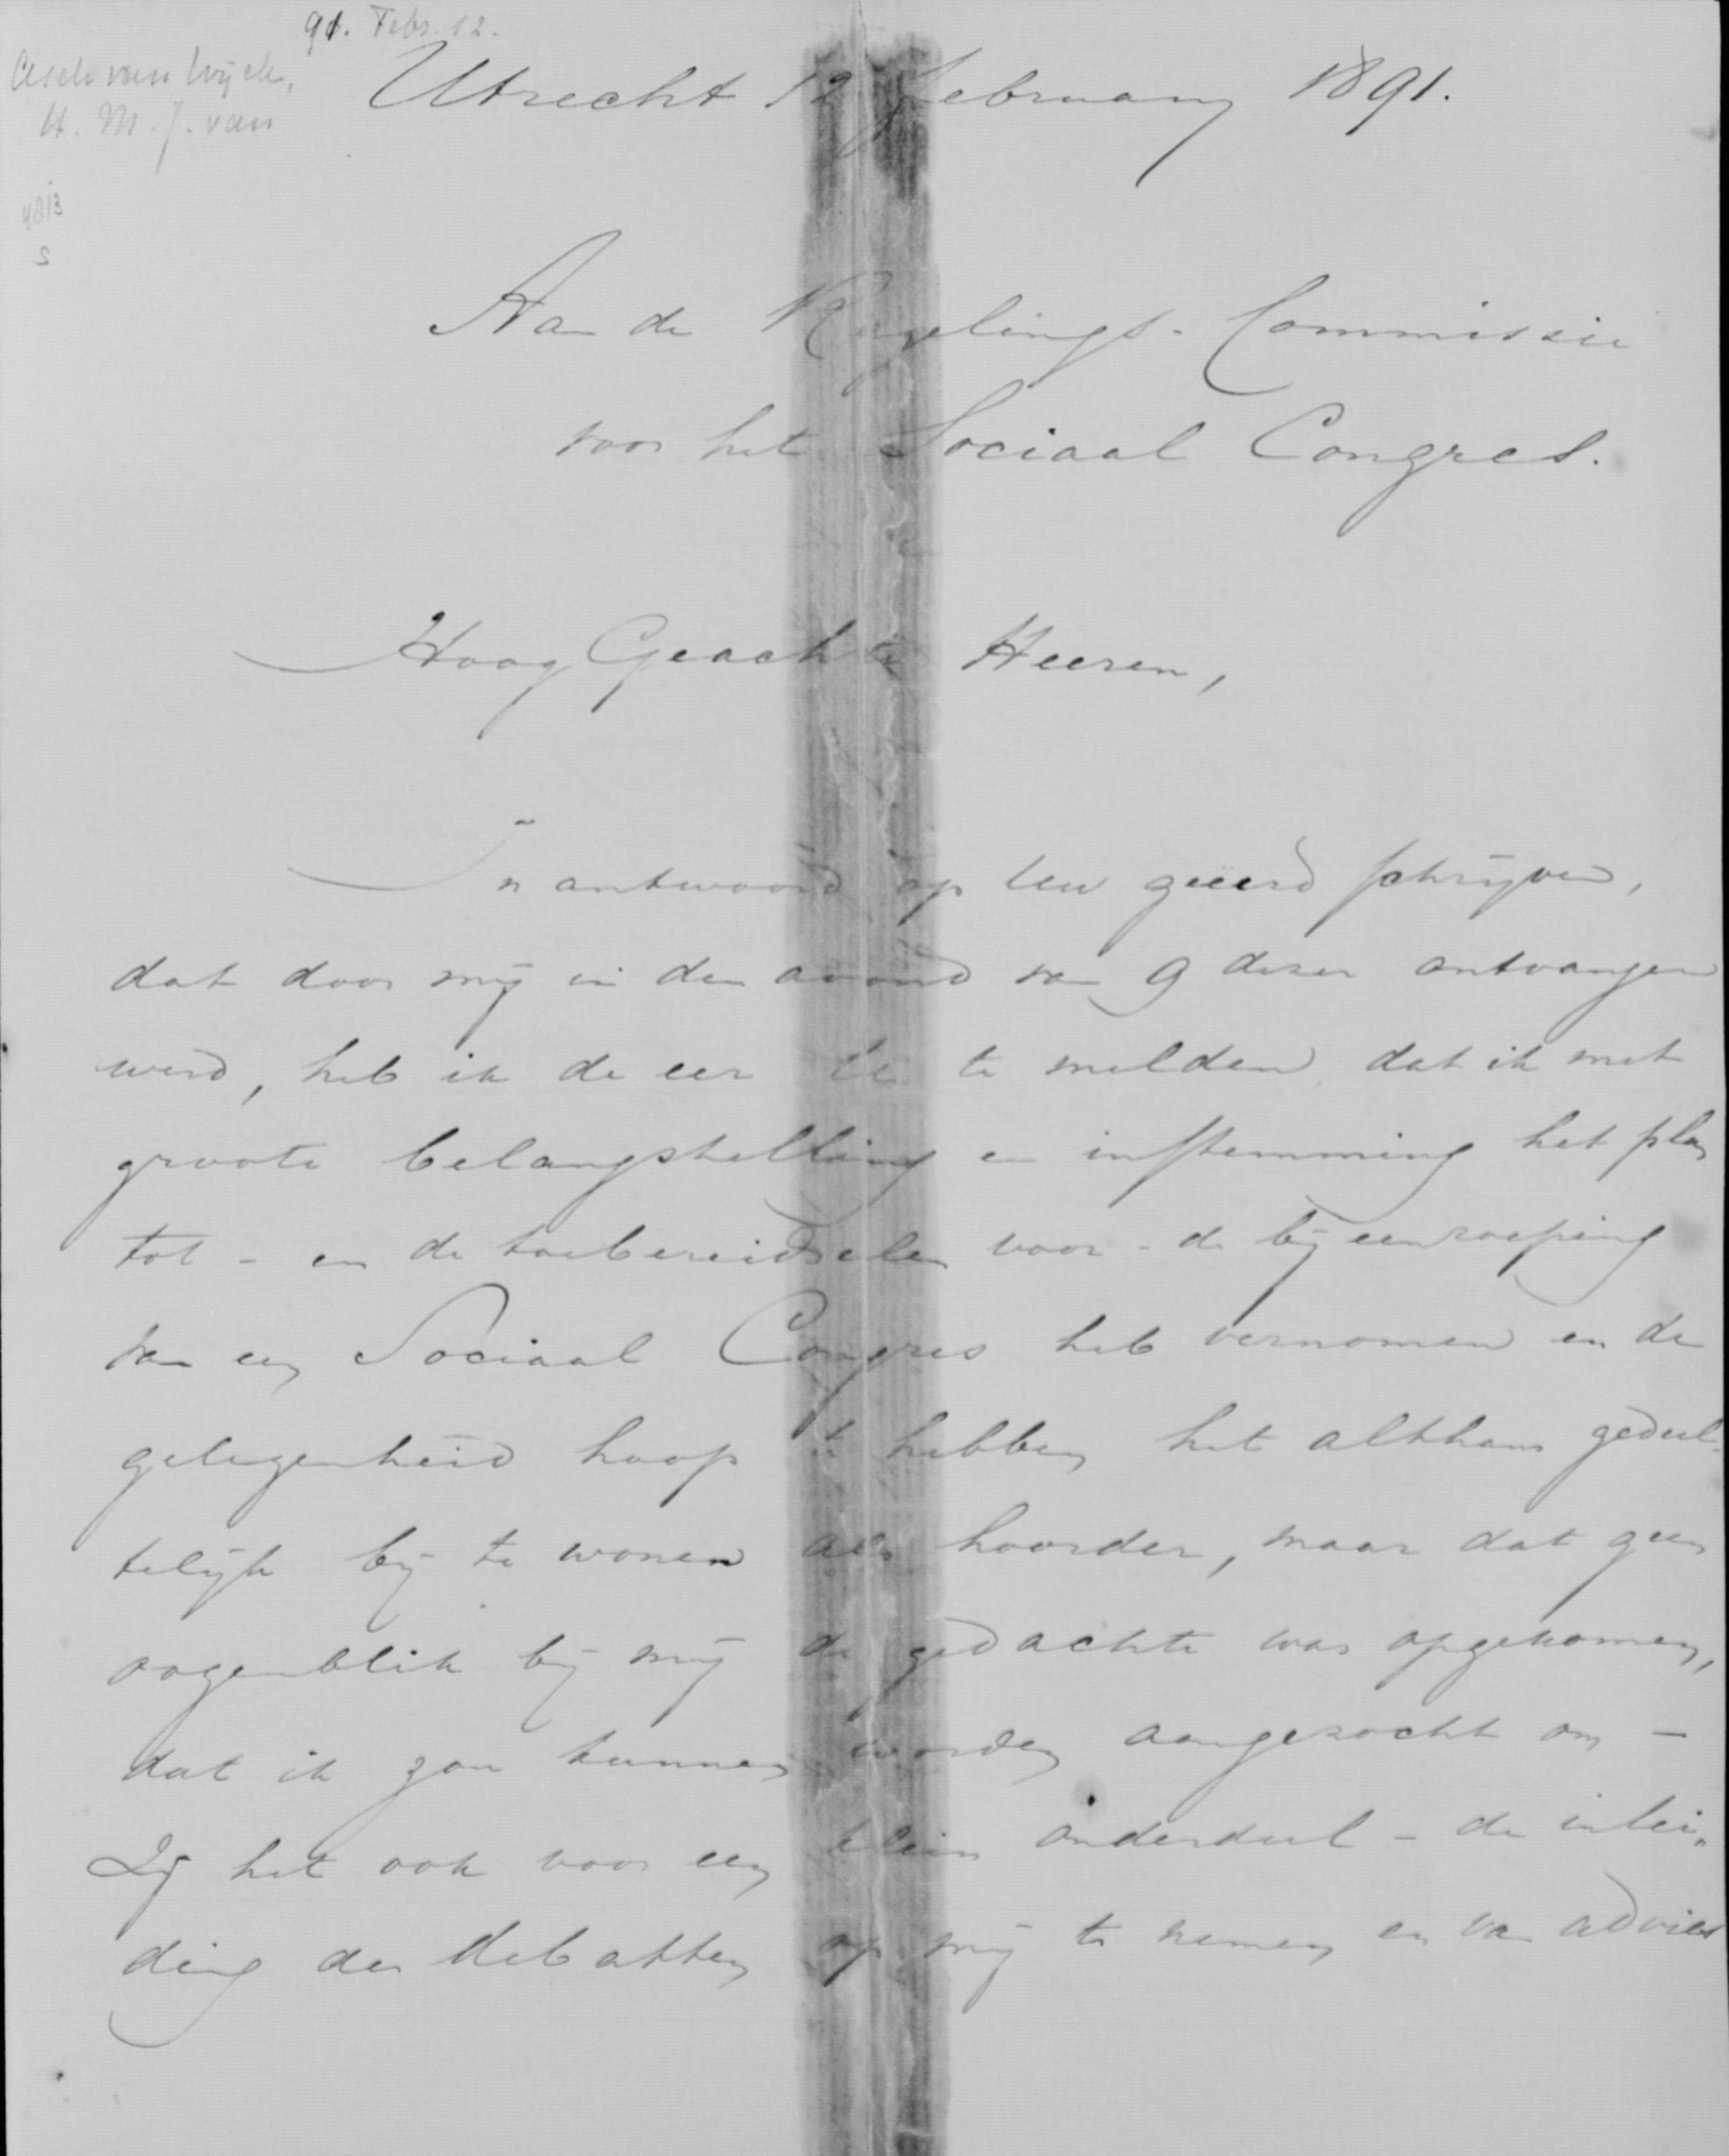 91. Febr. 12.
Asch van Wijck,
H. M. J. van
Utrecht 12 February 1891.
4813
2
Aan de Regelings-Commissie
voor het Sociaal Congres.
Hoog Geachte Heeren,
In antwoord op Uw geëerd schrijven,
dat door mij in den avond van 9 dezer ontvangen
werd, heb ik de eer U te melden, dat ik met
groote belangstelling en instemming het plan
tot - en de toebereidselen voor - de bijeenroeping
van een Sociaal Congres heb vernomen en de
gelegenheid hoop te hebben het althans gedeel-
telijk bij te wonen als hoorder, maar dat geen
oogenblik bij mij de gedachte was opgekomen,
dat ik zou kunnen worden aangezocht om -
Zij het ook voor een klein onderdeel - de inlei„
ding der debatten op mij te nemen en van advies